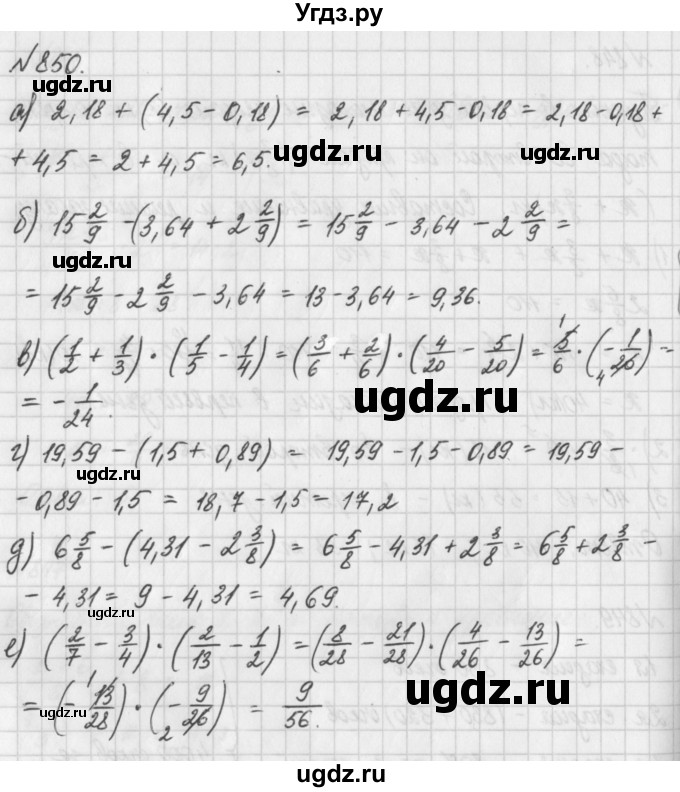 Угдз.ру
№850.
а) 2,18 + (4,5 - 0,18) = 2,18 + 4,5 - 0,18 = 2,18 - 0,18 +
+ 4,5 = 2 + 4,5 = 6,5.
б) 15 2/9 - (3,64 + 2 2/9) = 15 2/9 - 3,64 - 2 2/9 =
= 15 2/9 - 2 2/9 - 3,64 = 13 - 3,64 = 9,36.
в) (1/2 + 1/3) · (1/5 - 1/4) = (3/6 + 2/6) · (4/20 - 5/20) = 5/6 · (-1/20) =
= - 1/24.
г) 19,59 - (1,5 + 0,89) = 19,59 - 1,5 - 0,89 = 19,59 -
- 0,89 - 1,5 = 18,7 - 1,5 = 17,2
д) 6 5/8 - (4,31 - 2 3/8) = 6 5/8 - 4,31 + 2 3/8 = 6 5/8 + 2 3/8 -
- 4,31 = 9 - 4,31 = 4,69.
е) (2/7 - 3/4) · (2/13 - 1/2) = (8/28 - 21/28) · (4/26 - 13/26) =
= (-13/28) · (-9/26) = 9/56.
ugdz.ru
ugdz.ru
ugdz.ru
ugdz.ru
ugdz.ru
ugdz.ru
ugdz.ru
ugdz.ru
ugdz.ru
ugdz.ru
ugdz.ru